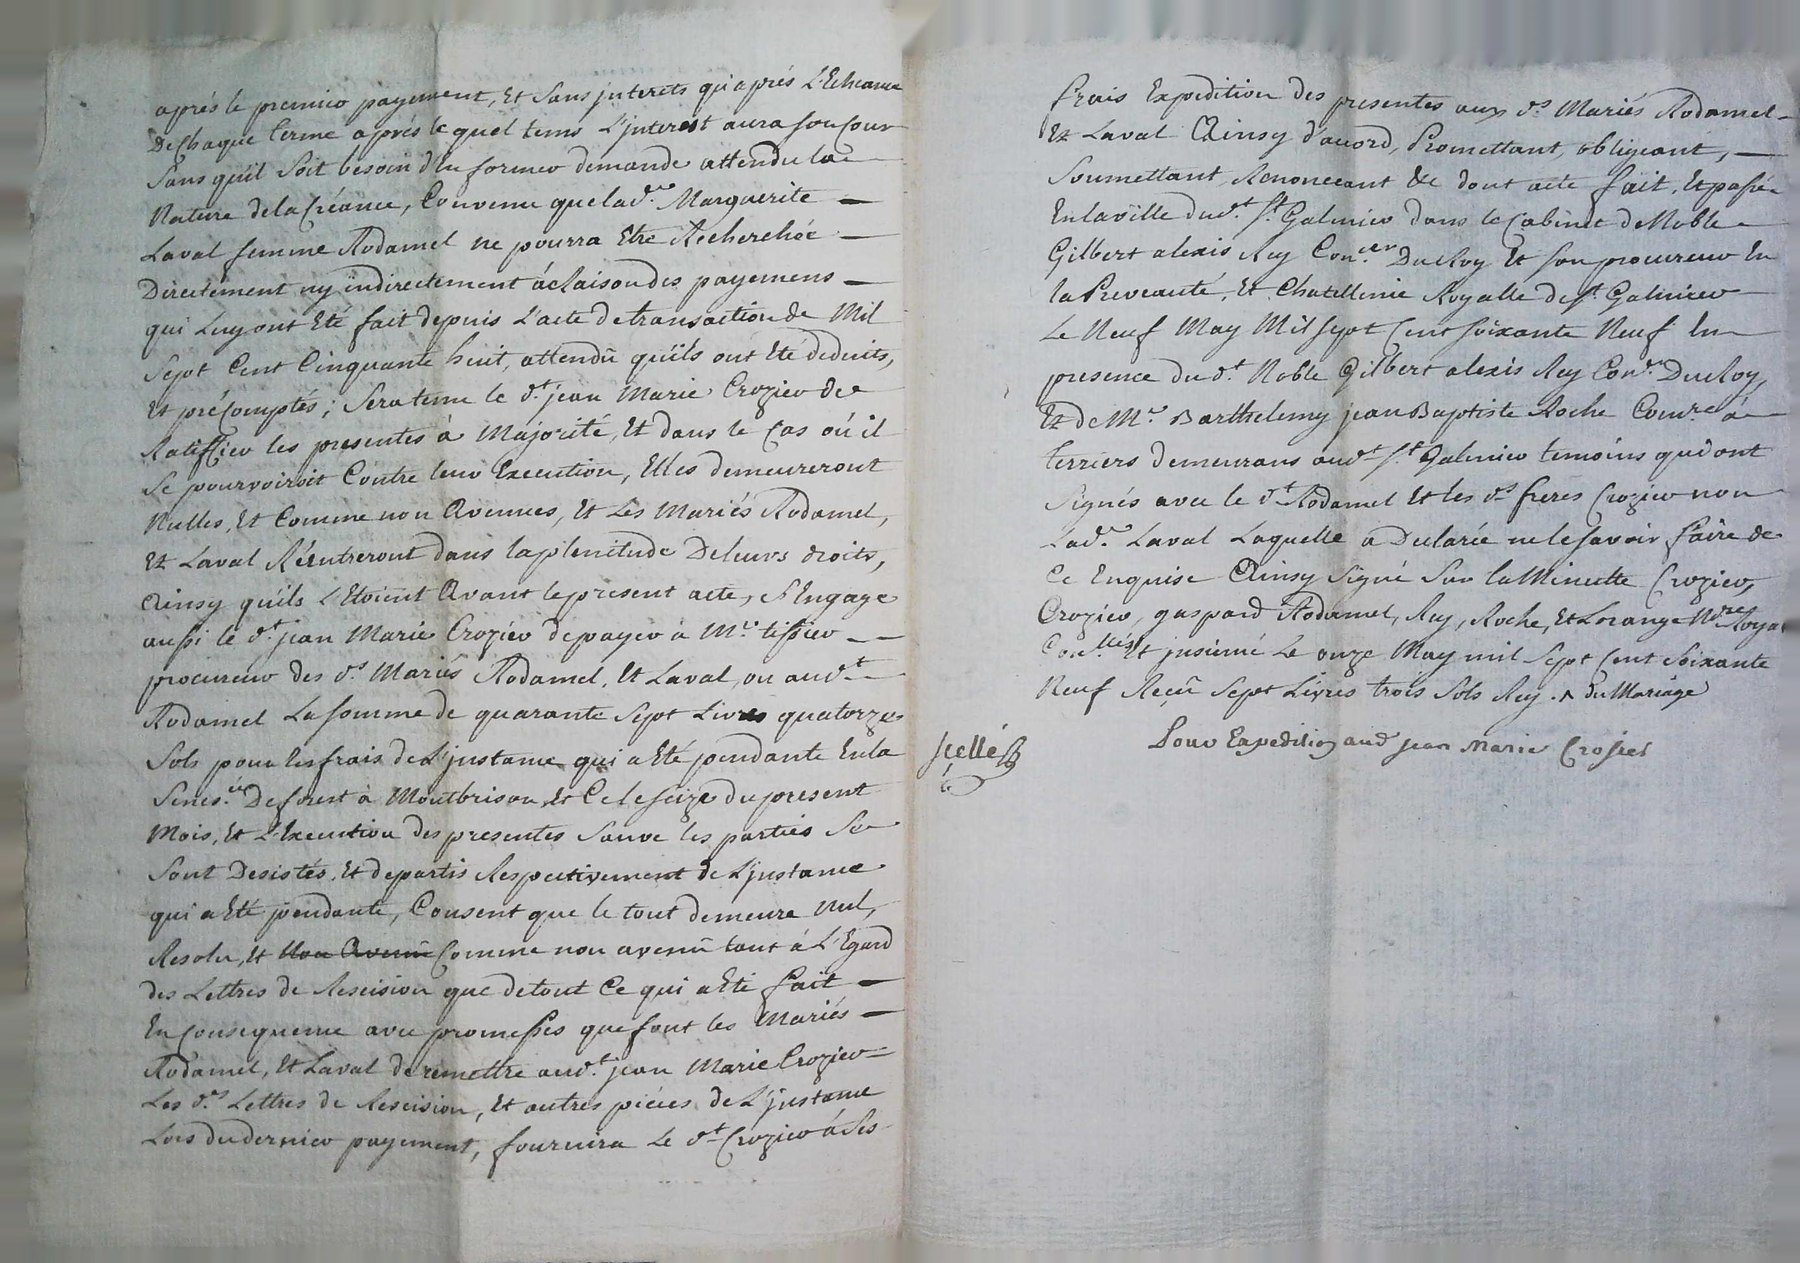 après le premier payement, Et sans jnterets qu'après L'Echeance
De Chaque terme après lequel tems L'jnterest aura son cour
sans qu'il soit besoin d'en former demande attendu la
Nature de la Créance, Convenu que lad.e Marguerite —
Laval femme Rodamel ne pourra Etre Recherchée —
Directement ny indirectement à Raison des payemens —
qui Luy ont Eté fait depuis L'acte de transaction de Mil
Sept Cent Cinquante huit, attendû qu'ils ont Eté deduits,
Et précomptés; Sera tenu le d.t jean Marie Crozier de
Ratiffier les presentes à Majorité, Et dans le Cas où il
se pourvoiroit Contre leur Execution, Elles demeureront
Nulles, Et Comme non Avenues, Et Les Mariés Rodamel,
Et Laval Réentreront dans la plenitude De leurs droits,
Ainsy qu'ils L'Etoient Avant le present acte, s'Engage
aussi le d.t jean Marie Crozier de payer à M.r tissier —
procureur des d.s Mariés Rodamel, Et Laval, ou aud.t —
Rodamel La somme de quarante sept Livres quatorze
Sols pour les frais de L'jnstance qui a Eté pendante En la
Senes.ée De forest à Montbrison, Et Ce le seize du present
Mois, Et L'Execution des presentes sauve les parties se
sont Desistés, Et departis Respectivement de L'jnstance
qui a Eté pendante, Consent que le tout demeure Nul,
Resolu, Et Non Avenû Comme non avenû tant à L'Egard
des Lettres de Rescision que de tout Ce qui a Eté fait —
En Consequence avec promesses que font les Mariés —
Rodamel, Et Laval de remettre aud.t jean Marie Crozier
Les d.es Lettres de Rescision, Et autres piéces de L'jnstance
Lors du dernier payement, fournira Le d.t Crozier à ses
frais Expedition des presentes aux d.s Mariés Rodamel
Et Laval Ainsy d'acord, Promettant, obligeant, —
Soumettant, Renonceant &c dont acte fait, Et passé
En la ville dud.t S.t Galmier dans le Cabinet de Noble
Gilbert alexis Rey Con.er Du Roy Et son procureur En
la Prevauté, Et Chatellenie Royalle de S.t Galmier
Le Neuf May Mil sept Cent soixante Neuf En
presence dud.t Noble Gilbert alexis Rey Con.er Du Roy,
Et de M.r Barthelemy jean Baptiste Roche Com.re à
terriers demeurans aud.t S.t Galmier temoins qui ont
Signés avec le d.t Rodamel Et les d.s freres Crozier non
Lad.e Laval Laquelle a Declarée ne le savoir faire de
Ce Enquise Ainsy signé sur la Minutte Crozier,
Crozier, gaspard Rodamel, Rey, Roche, Et Lorange N.re Roya
Con.llé Et jnsinué Le onze May mil Sept Cent Soixante
Neuf Reçû Sept Livres trois Sols Rey . du Mariage
scellé
Pour Expedition aud. jean Marie Crosier